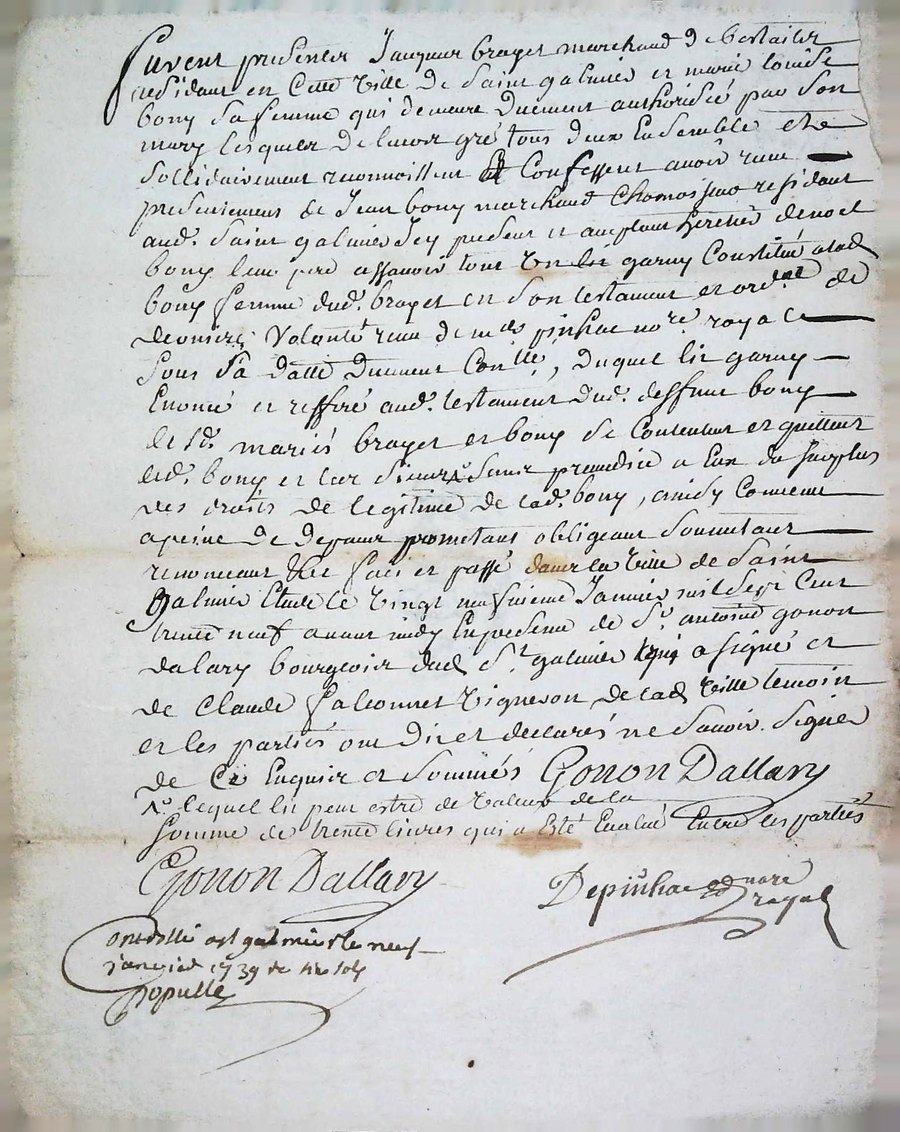 furent presentes Jacques brayet marchand de bestailes
residant en Cette Ville de Saint galmier et marie louise
bony sa femme qui demeure duement authorisée par son
mary lesquels de leur gré tous deux Ensemble et
sollidairement reconnoissent et Confessent avoir receu
presentement de Jean bony marchand residant
aud. Saint galmier Icy present et aceptant heretier de noel
bony leur pere assavoir tout Un lit garny Constitué a lad
bony femme dud. brayet en Son testament et ord.re de
derniere Volonté receu de me de pinhac no.re royal
sous Sa datte duement Con.llé, duquel lit garny
Enoncé et refferé aud. testament dud. deffunt bony
les sd. mariés brayet et bony Se Contentent et quittent
led. bony et les siens sans prejudice a Eux du surplus
des droits de legitime de lad. bony, ainsy Convenu
a peine de depans prometans obligeant Soumetant
renonceant &c fait et passé dans la Ville de Saint
galmier Etude le Vingt neufvieme Janvier mil Sept Cent
trente neuf avant midy En presence de Sr. antoine gonon
dalary bourgeois dud St. galmier qui a signé et
de Claude falconnet Vigneron de lad Ville temoin
et les parties ont dit et declarés ne Savoir Signer
de Ce Enquis et Sommés Gonon Dallary
lequel lit peut estre de Valeur de la
somme de trente livres qui a Esté Evalué Entre les parties
Gonon Dallary
Depinhac nore
royal
Controllé a st galmier le neuf
janvier 1739 six sols